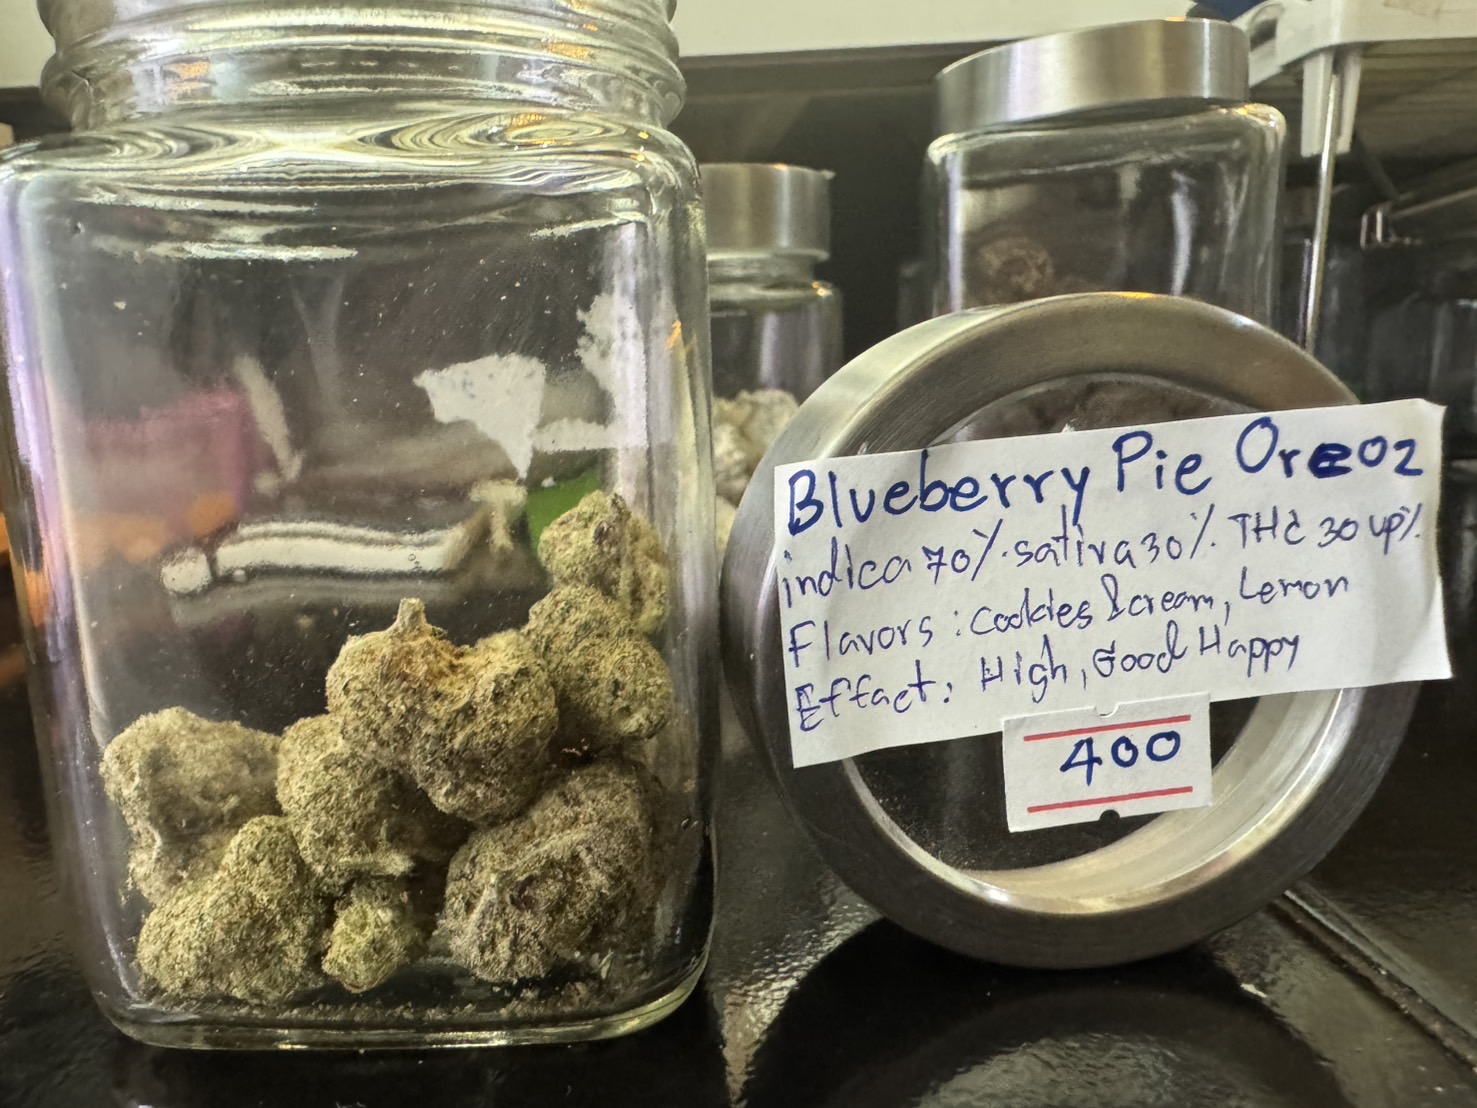 Blueberry Pie Oreoz
indica 70% sativa 30% THC 30 up%
Flavors : Cookies & cream, Lemon
Effact: High, Good Happy
400